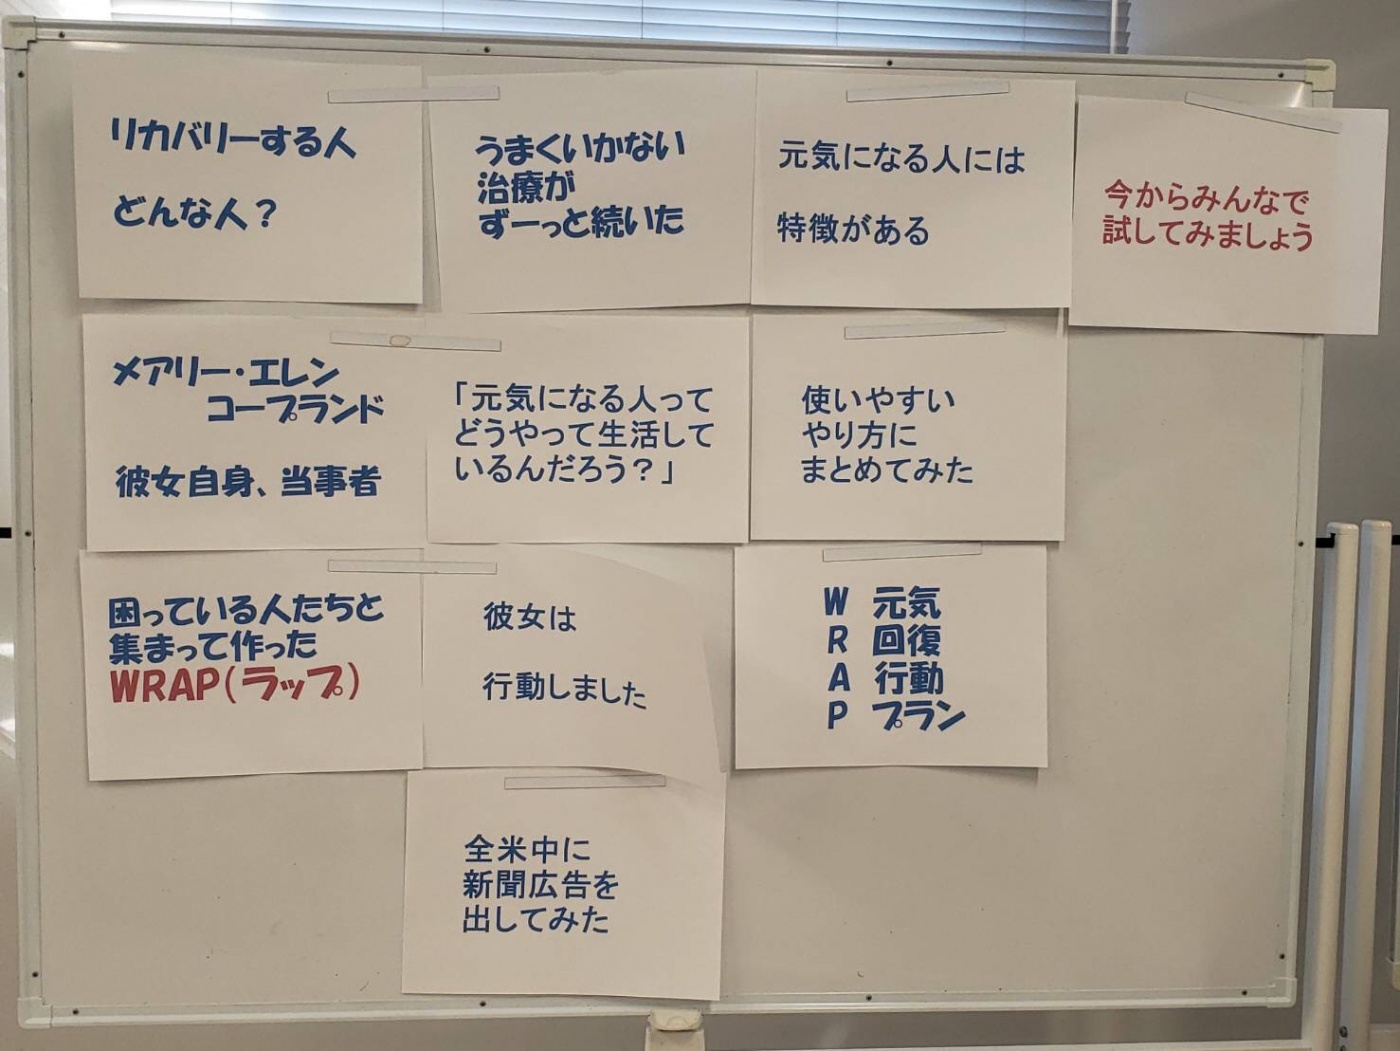 リカバリーする人
どんな人？
メアリー・エレン
コープランド
彼女自身、当事者
困っている人たちと
集まって作った
WRAP（ラップ）
うまくいかない
治療が
ずーっと続いた
「元気になる人って
どうやって生活して
いるんだろう？」
彼女は
行動しました
全米中に
新聞広告を
出してみた
元気になる人には
特徴がある
使いやすい
やり方に
まとめてみた
W 元気
R 回復
A 行動
P プラン
今からみんなで
試してみましょう